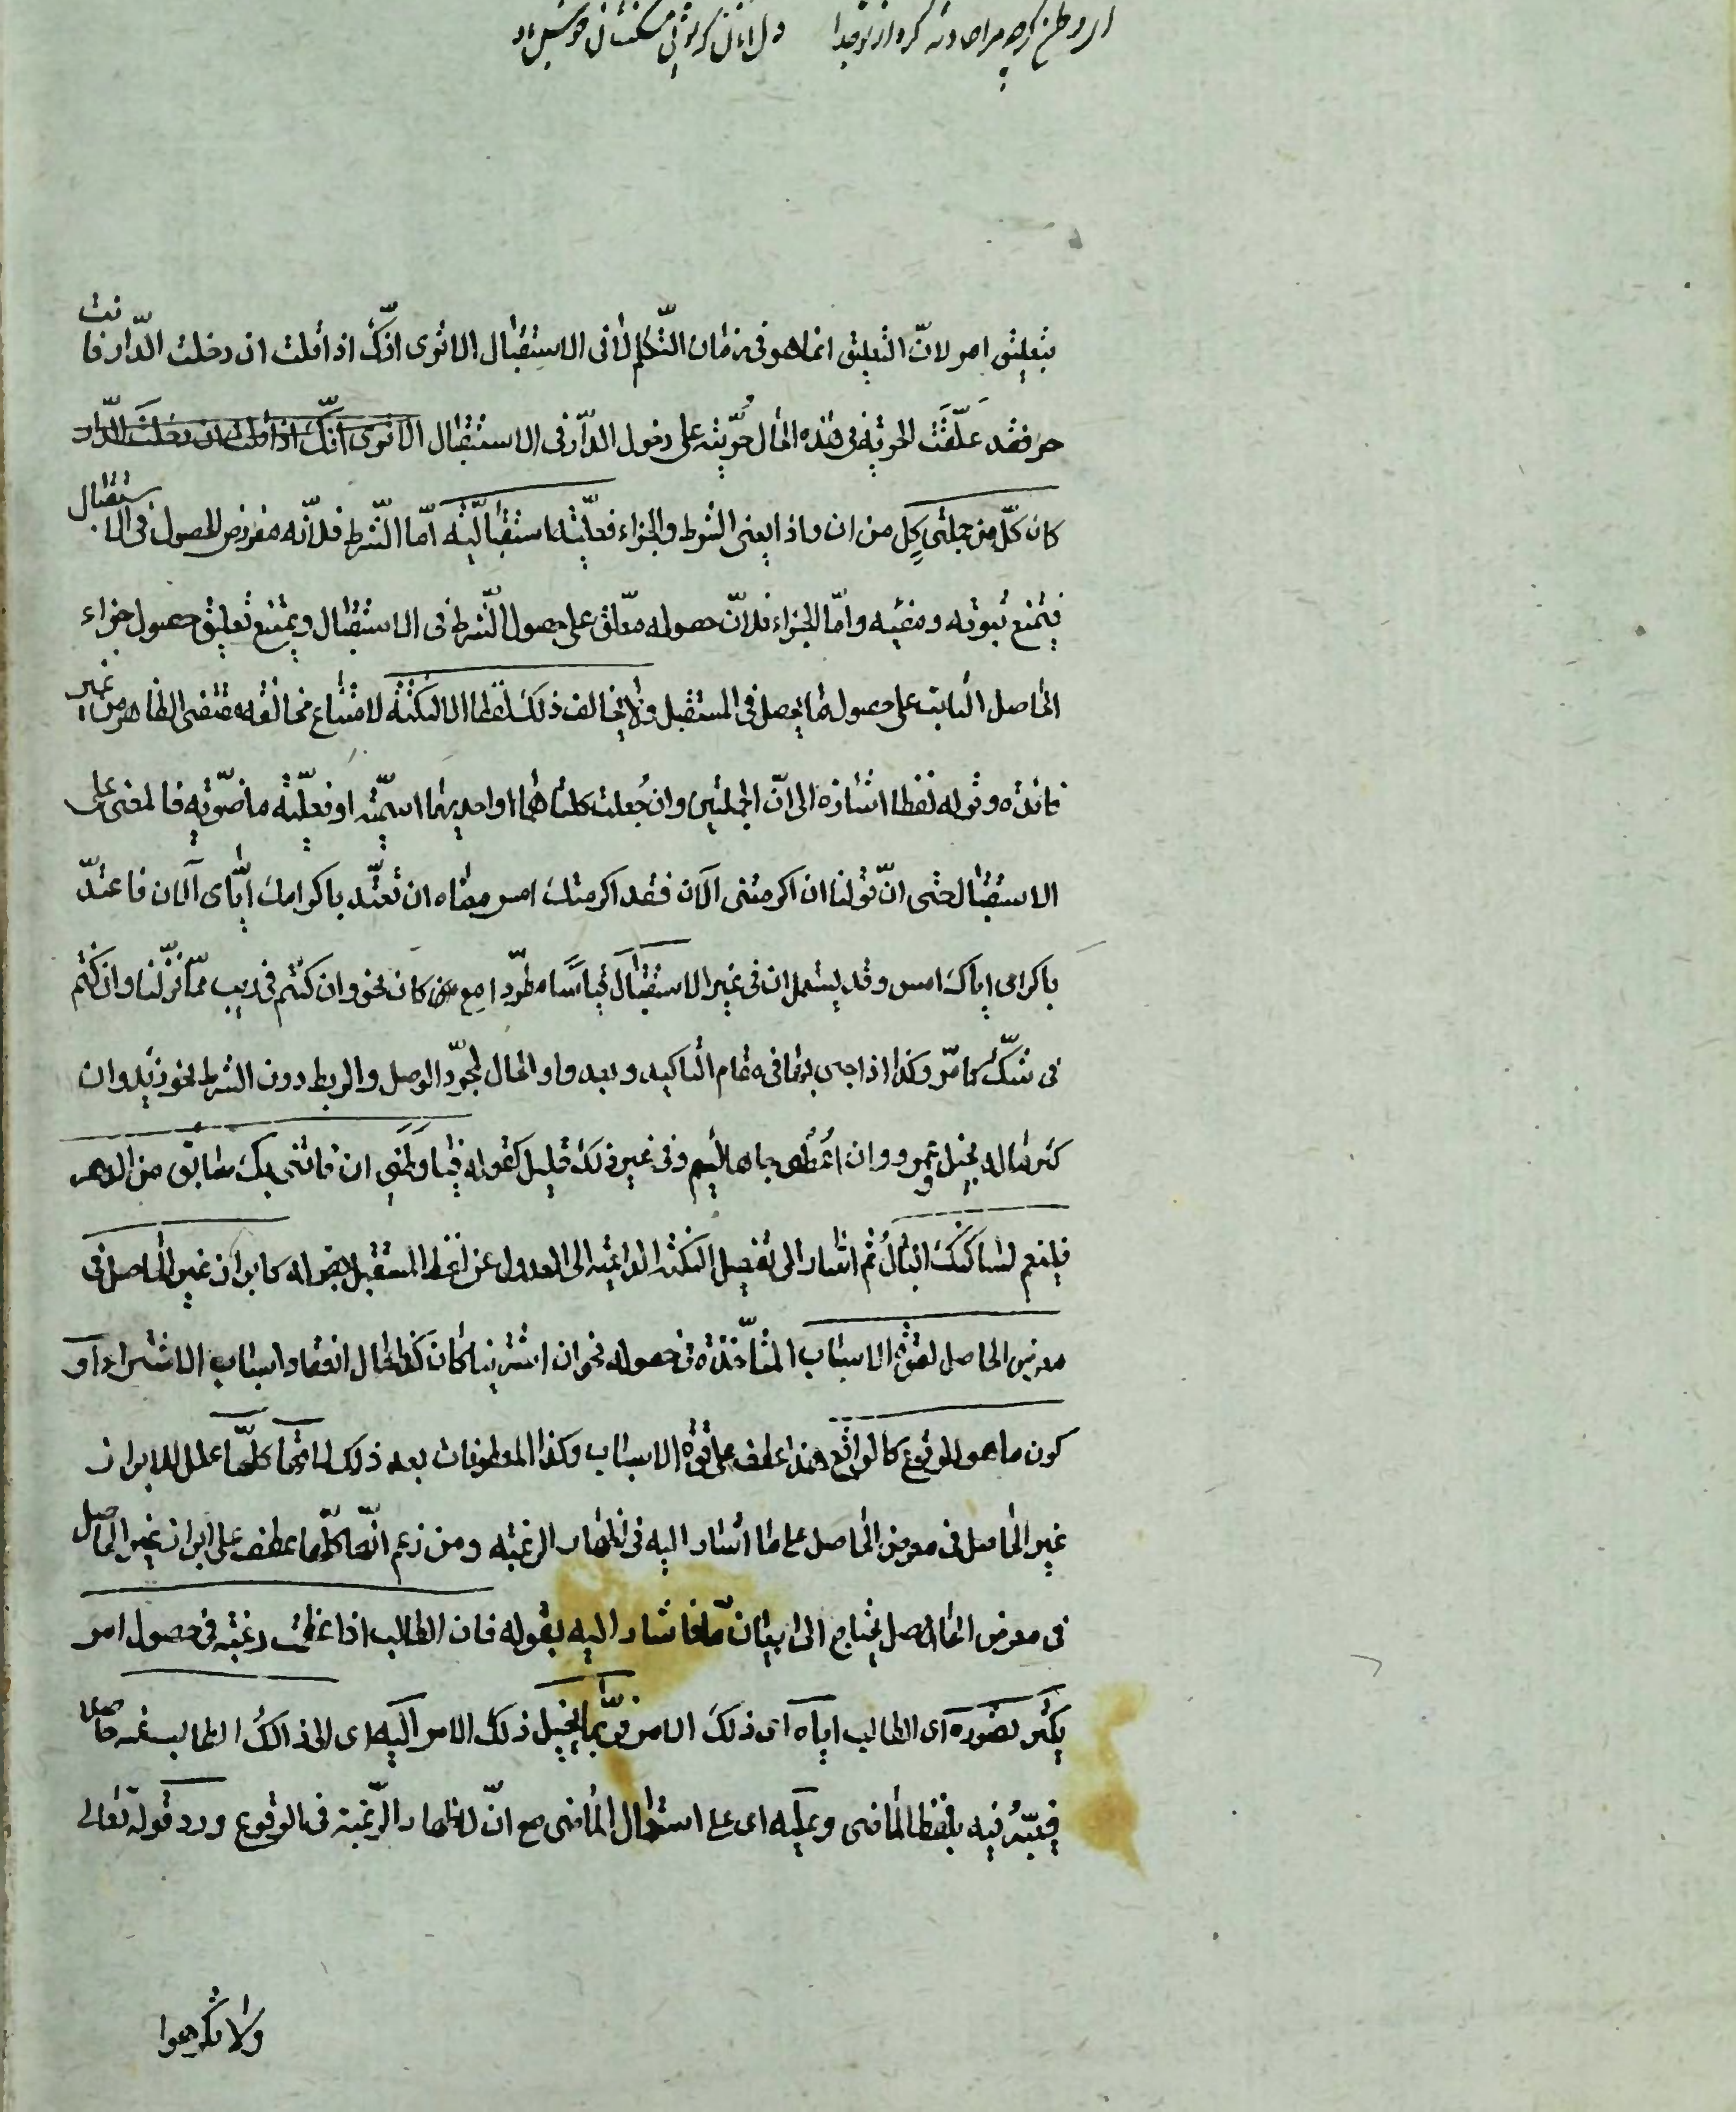 ای وطن گرچه مرا حادثه کرد از تو جدا
بتعليق امر لانّ التعليق انما هو فى زمان التّكلّم لا فى الاستقبال الا ترى انّك اذا قلت ان دخلت الدّار فانت
حر فقد علّقت الحرّية فى هذه الحال حرّيته على دخول الدّار فى الاستقبال الا ترى انّك اذا قلت ان دخلت الدّار
كان كلّ من جملتى كل من ان واذا يعنى الشرط والجزاء فعليّة استقباليّة امّا الشّرط فلانّه مفروض الحصول فى الاستقبال
فيمتنع ثبوته ومضيّه وامّا الجزاء فلانّ حصوله معلّق على حصول الشّرط فى الاستقبال ويمتنع تعليق حصول جزاء
الحاصل الثابت على حصول ما يحصل فى المستقبل ولا يخالف ذلك لفظا الا لنكتة لامتناع مخالفة مقتضى الظاهر من غير
فائدة وقوله لفظا اشارة الى انّ الجملتين وان جُعلت كلتاهما او احديهما اسميّة او فعليّة ماضويّة فالمعنى على
الاستقبال حتى انّ قولنا ان اكرمتنى الآن فقد اكرمتك امس معناه ان تعتّد باكرامك ايّاى الآن فاعتدّ
باكرامى اياك امس وقد يستعمل ان فى غير الاستقبال قياسًا مطّردا مع كان نحو وان كنتم فى ريب ممّا نزّلنا وان كنتم
فى شكّ كما مرّ وكذا اذا جىء بها فى مقام التاكيد وبعد واو الحال لمجرّد الوصل والربط دون الشرط نحو زيد وان
كثر ماله بخيل وعمرو وان اُعطى جاها لئيم وفى غير ذلك قليل كقوله فيا وطنى ان فاتنى بك سابق من الدهر
فلينعم لساكنك البالُ ثم اشار الى تفصيل النكتة الداعية الى العدول عن لفظ المستقبل بقوله كابراز غير الحاصل فى
معرض الحاصل لقوّة الاسباب المتأخذة فى حصوله نحو ان اشترينا كان كذا حال انعقاد اسباب الاشتراء او
كون ما هو للوقوع كالواقع هذا عطف على قوّة الاسباب وكذا المعطوفات بعد ذلك لانّها كلّها علل للابراز
غير الحاصل فى معرض الحاصل على ما اشار اليه فى اظهار الرغبة ومن زعم انّها كلّها عطف على ابراز غير الحاصل
فى معرض الحاصل يحتاج الى بيان ما فاشار اليه بقوله فان الطالب اذا عظمت رغبته فى حصول امر
يكثر تصوره اى الطالب اياه اى ذلك الامر فربّما يخيل ذلك الامر اليه اى الى ذالك الطالب حاصلا
فيعبّر فيه بلفظ الماضى وعليه اى على استعمال الماضى مع انّ لاظهار الرّغبة فى الوقوع ورد قوله تعالى
ولا تكرهوا